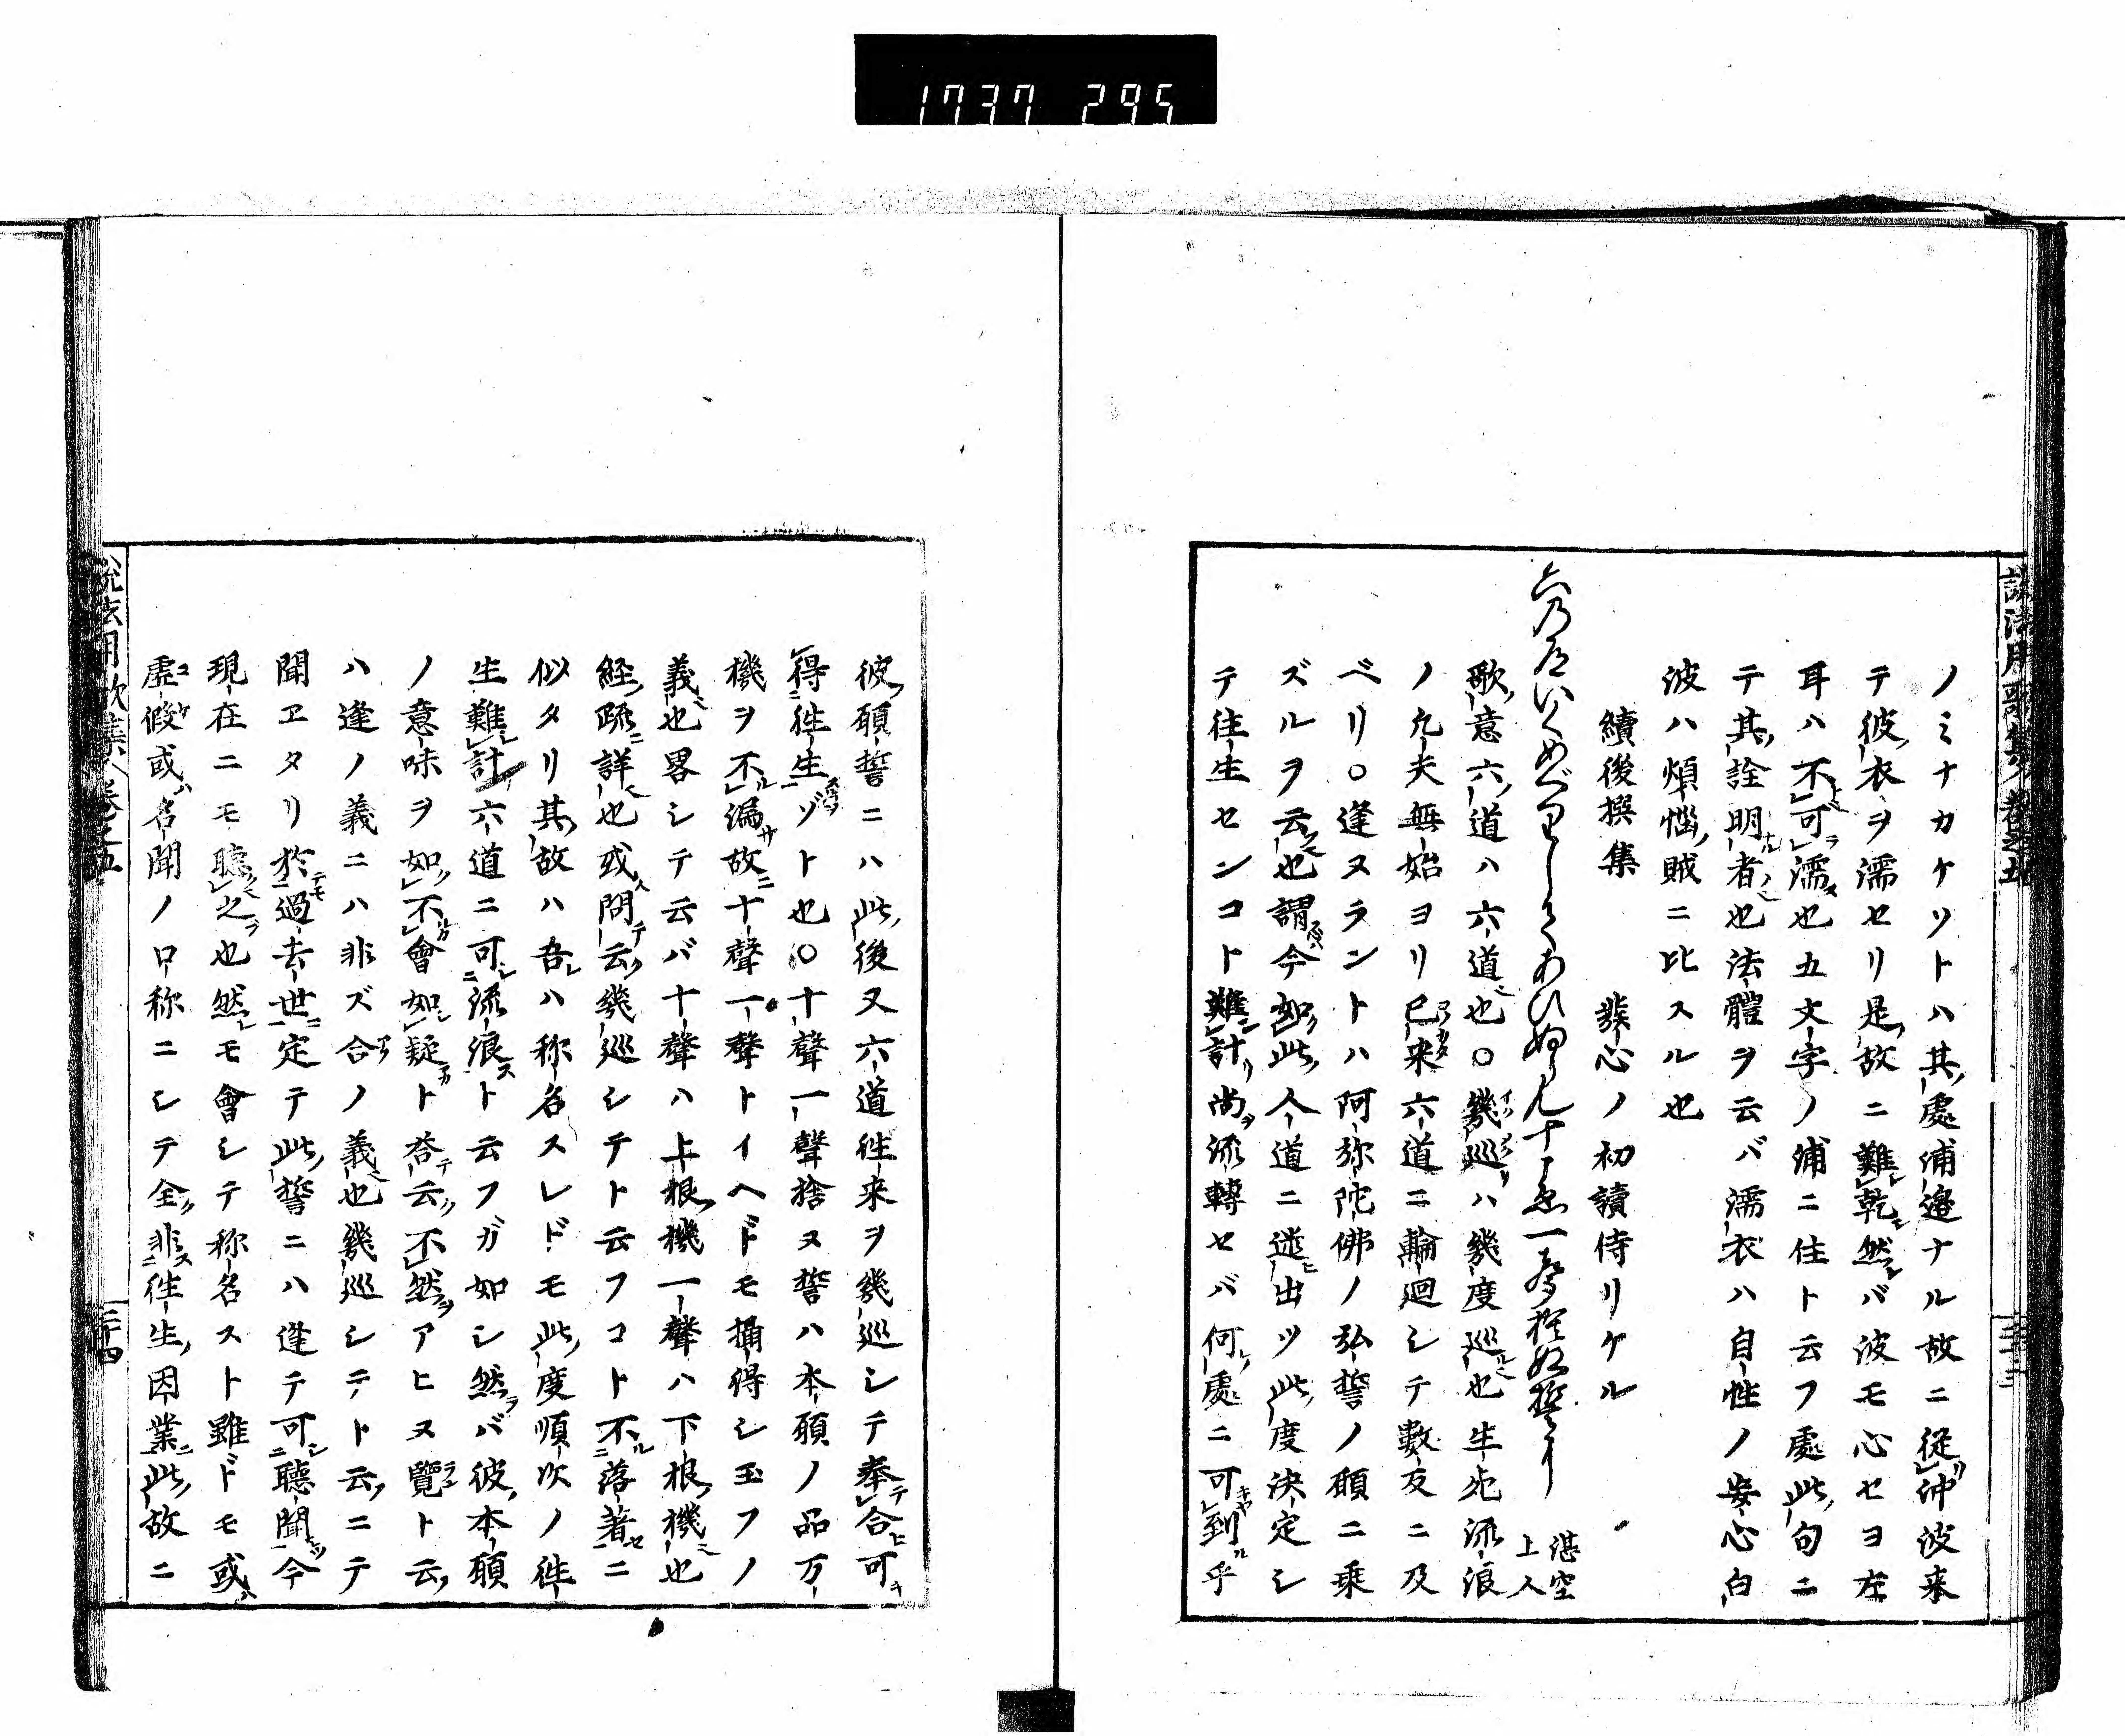 1737 295
ノミナカケソトハ其處浦邉ナル故ニ從沖波来
テ彼衣ヲ濡セリ是故ニ難乾然バ波モ心セヨ左
耳ハ不可濡也五文字ノ浦ニ住ト云フ處此句ニ
テ其詮明者也法體ヲ云バ濡衣ハ自性ノ安心白
波ハ煩惱賊ニ比スル也
續後撰集 發心ノ初讀侍リケル
湛空上人
歌意六道ハ六道也○幾巡ハ幾度巡也生死流浪
ノ凡夫無始ヨリ已来六道ニ輪廻シテ數友ニ及
ベリ○逢ヌラントハ阿弥陀佛ノ弘誓ノ願ニ乗
ズルヲ云也謂今如此人道ニ迷出ツ此度決定シ
テ往生センコト難計尚流轉セバ何處ニ可到乎
彼願誓ニハ此後又六道往来ヲ幾巡シテ奉合可
得往生ゾト也○十聲一聲捨ヌ誓ハ本願ノ品万
機ヲ不漏故十聲一聲トイヘドモ攝得シ玉フノ
義也畧シテ云バ十聲ハ上根機一聲ハ下根機也
経疏詳也或問云幾巡シテト云フコト不落著ニ
似タリ其故ハ吾ハ称名スレドモ此度順次ノ往
生難計六道ニ可流浪ト云フガ如シ然バ彼本願
ノ意味ヲ如不會如疑ト答云不然アヒヌ覽ト云
ハ逢ノ義ニハ非ズ合ノ義也幾巡シテト云ニテ
聞エタリ於過去世定テ此誓ニハ逢テ可聽聞今
現在ニモ聽之也然モ會シテ称名スト雖ドモ或
虚假或名聞ノ口称ニシテ全非往生因業此故ニ
説法用歌集 卷之五
二十四